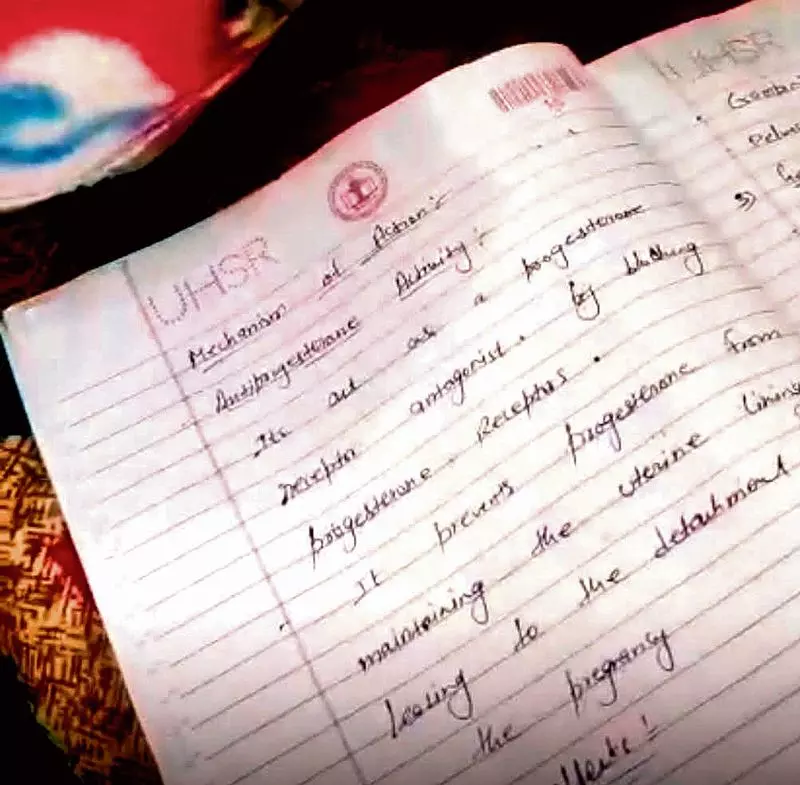 UHSR
Mechanism of Action :-
Antiprogesterone Activity :-
Its act as a progesterone
receptor antagonist. by blocking
progesterone Receptors.
It prevents progesterone from
maintaining the uterine lining
leading to the detachment
the pregnancy
UHSR
3)